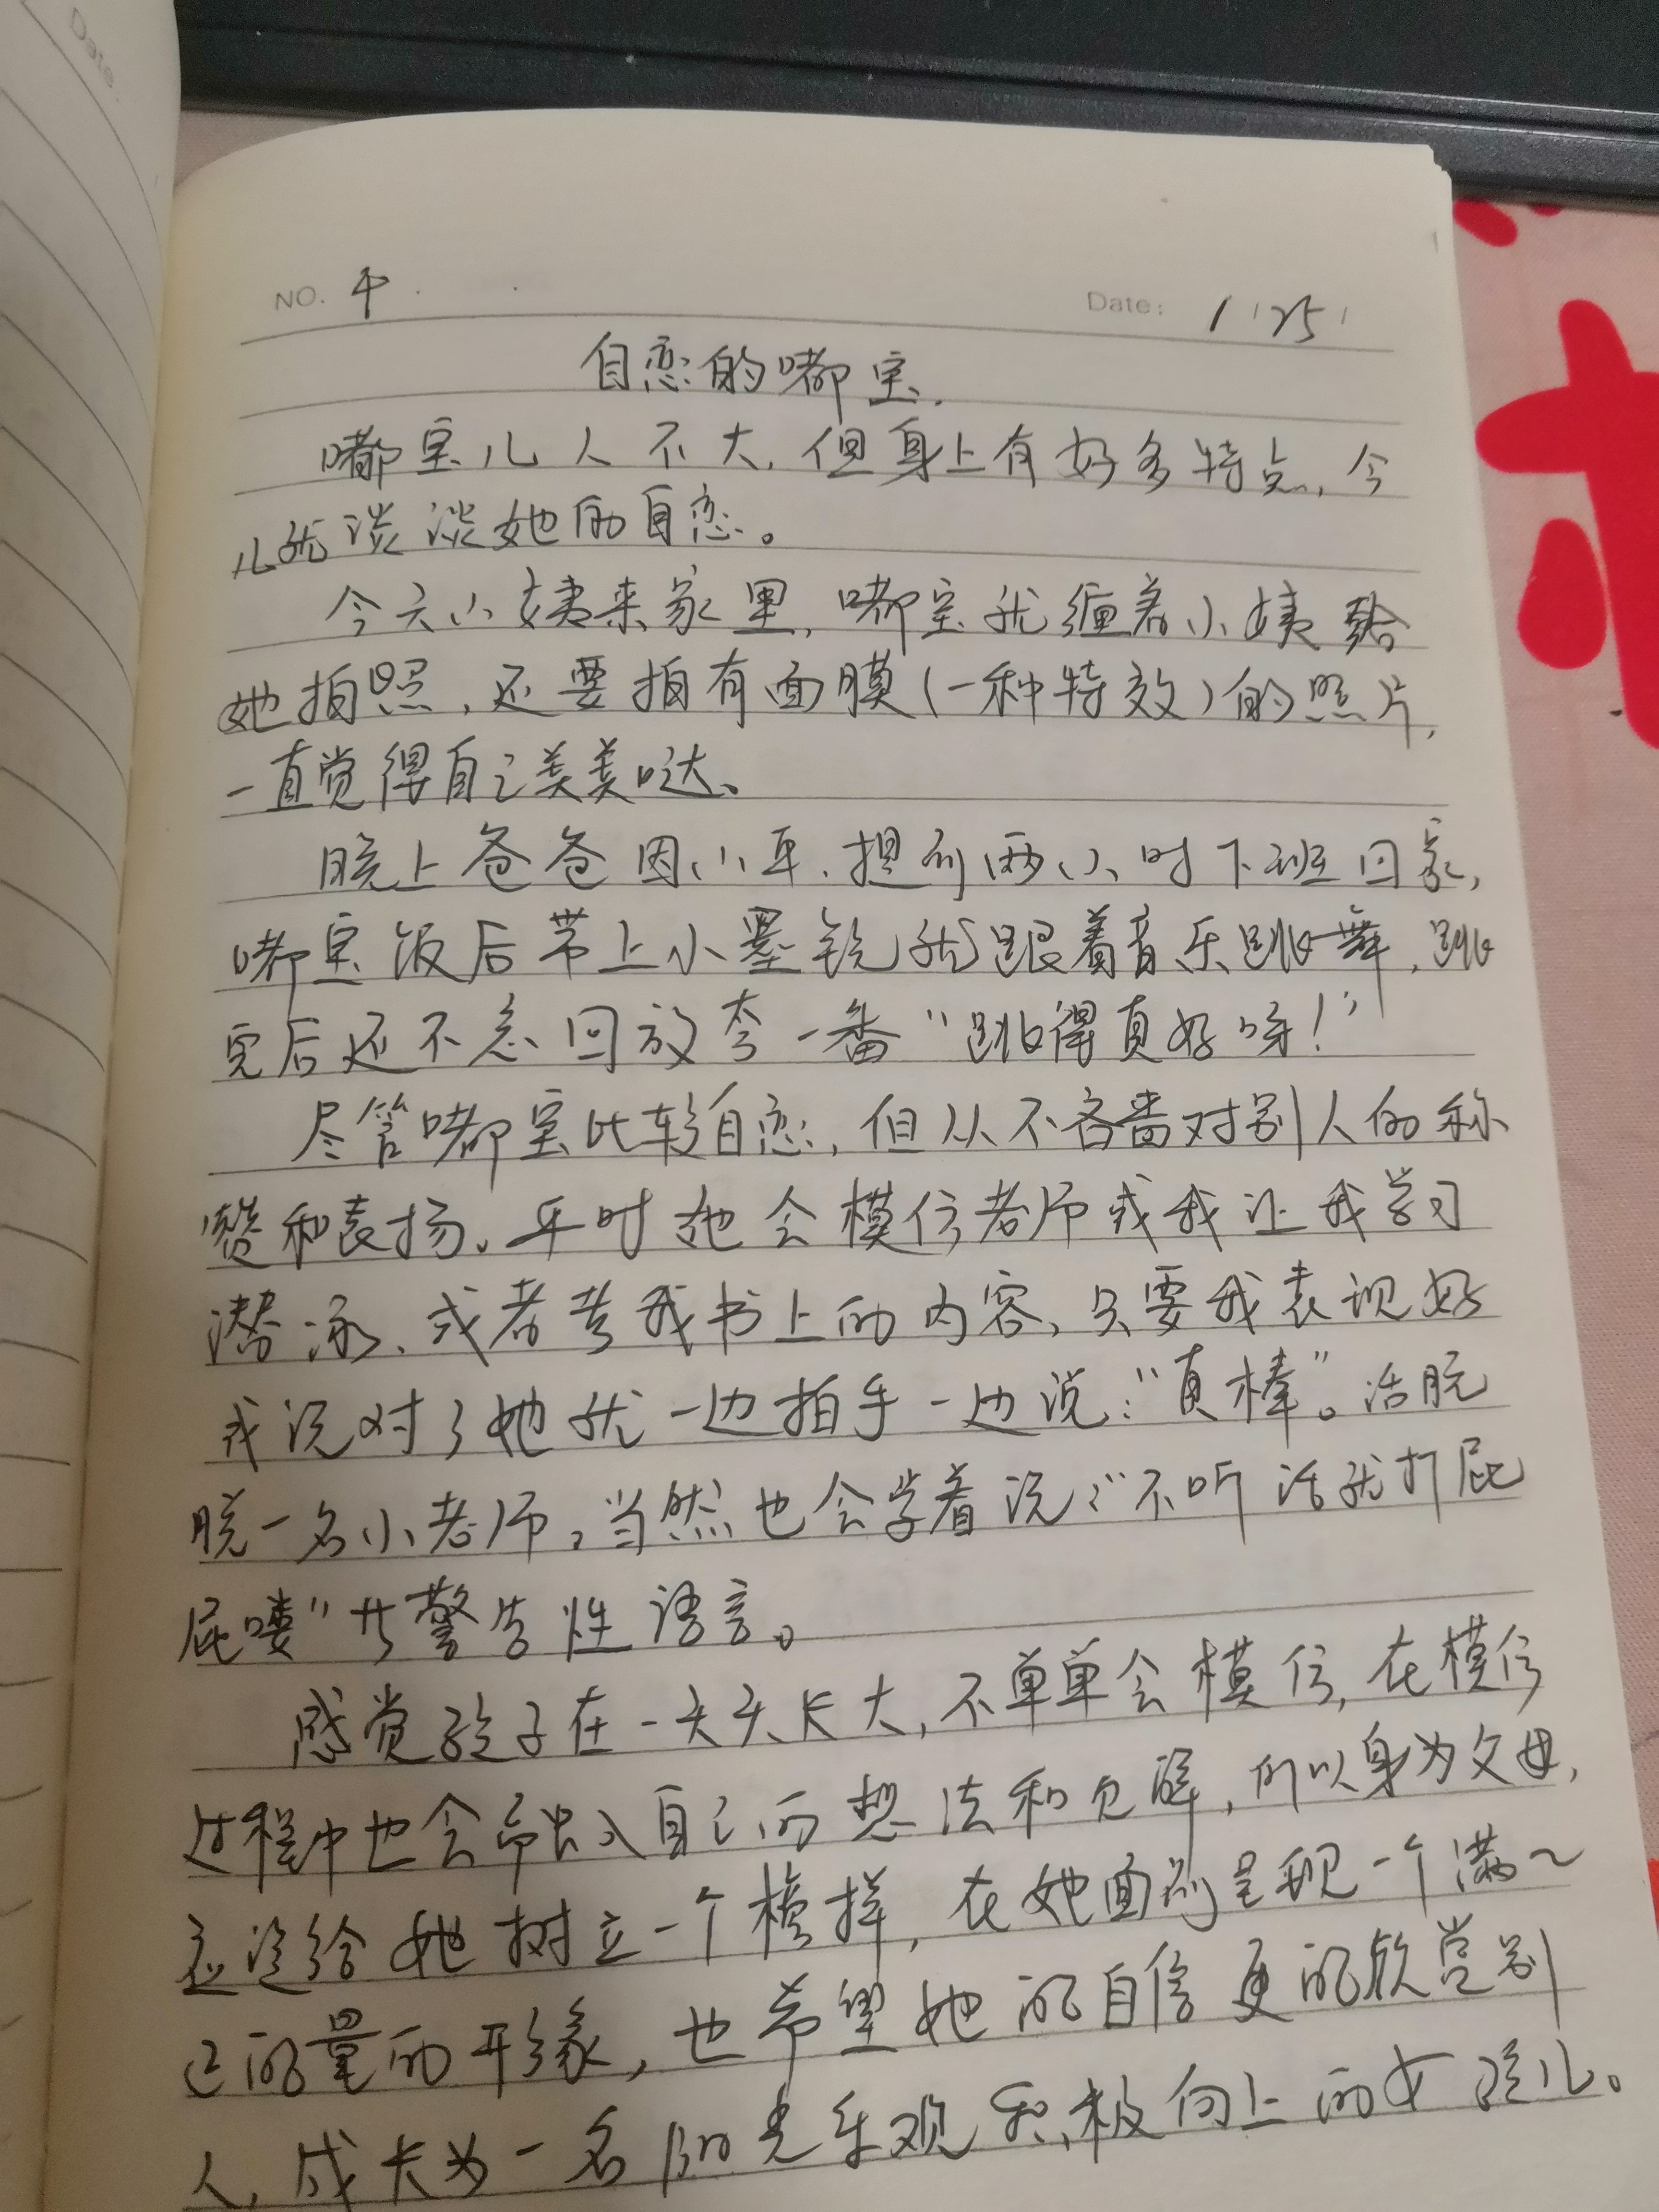 Date.
NO. 4
Date: 1/25/
自恋的嘟宝.
嘟宝儿人不大,但身上有好多特点,今
儿就谈谈她的自恋。
今天小姨来家里,嘟宝就缠着小姨给
她拍照,还要拍有面膜(一种特效)的照片,
一直觉得自己美美哒。
晚上爸爸因小年.提前两小时下班回家,
嘟宝饭后带上小墨镜就跟着音乐跳舞,跳
完后还不忘回放夸一番“跳得真好呀!”
尽管嘟宝比较自恋,但从不吝啬对别人的称
赞和表扬。平时她会模仿老师或我让我学习
潜泳、或者考我书上的内容,只要我表现好
或说对了她就一边拍手一边说:“真棒”。活脱
脱一名小老师。当然也会学着说:“不听话就打屁
屁喽”廿警告性语言。
感觉孩子在一天天长大,不单单会模仿,在模仿
过程中也会带入自己的想法和见解,所以身为父母,
应该给她树立一个榜样,在她面前呈现一个满~
正能量的形象,也希望她能自信更能欣赏别
人,成长为一名阳光乐观积极向上的女孩儿。